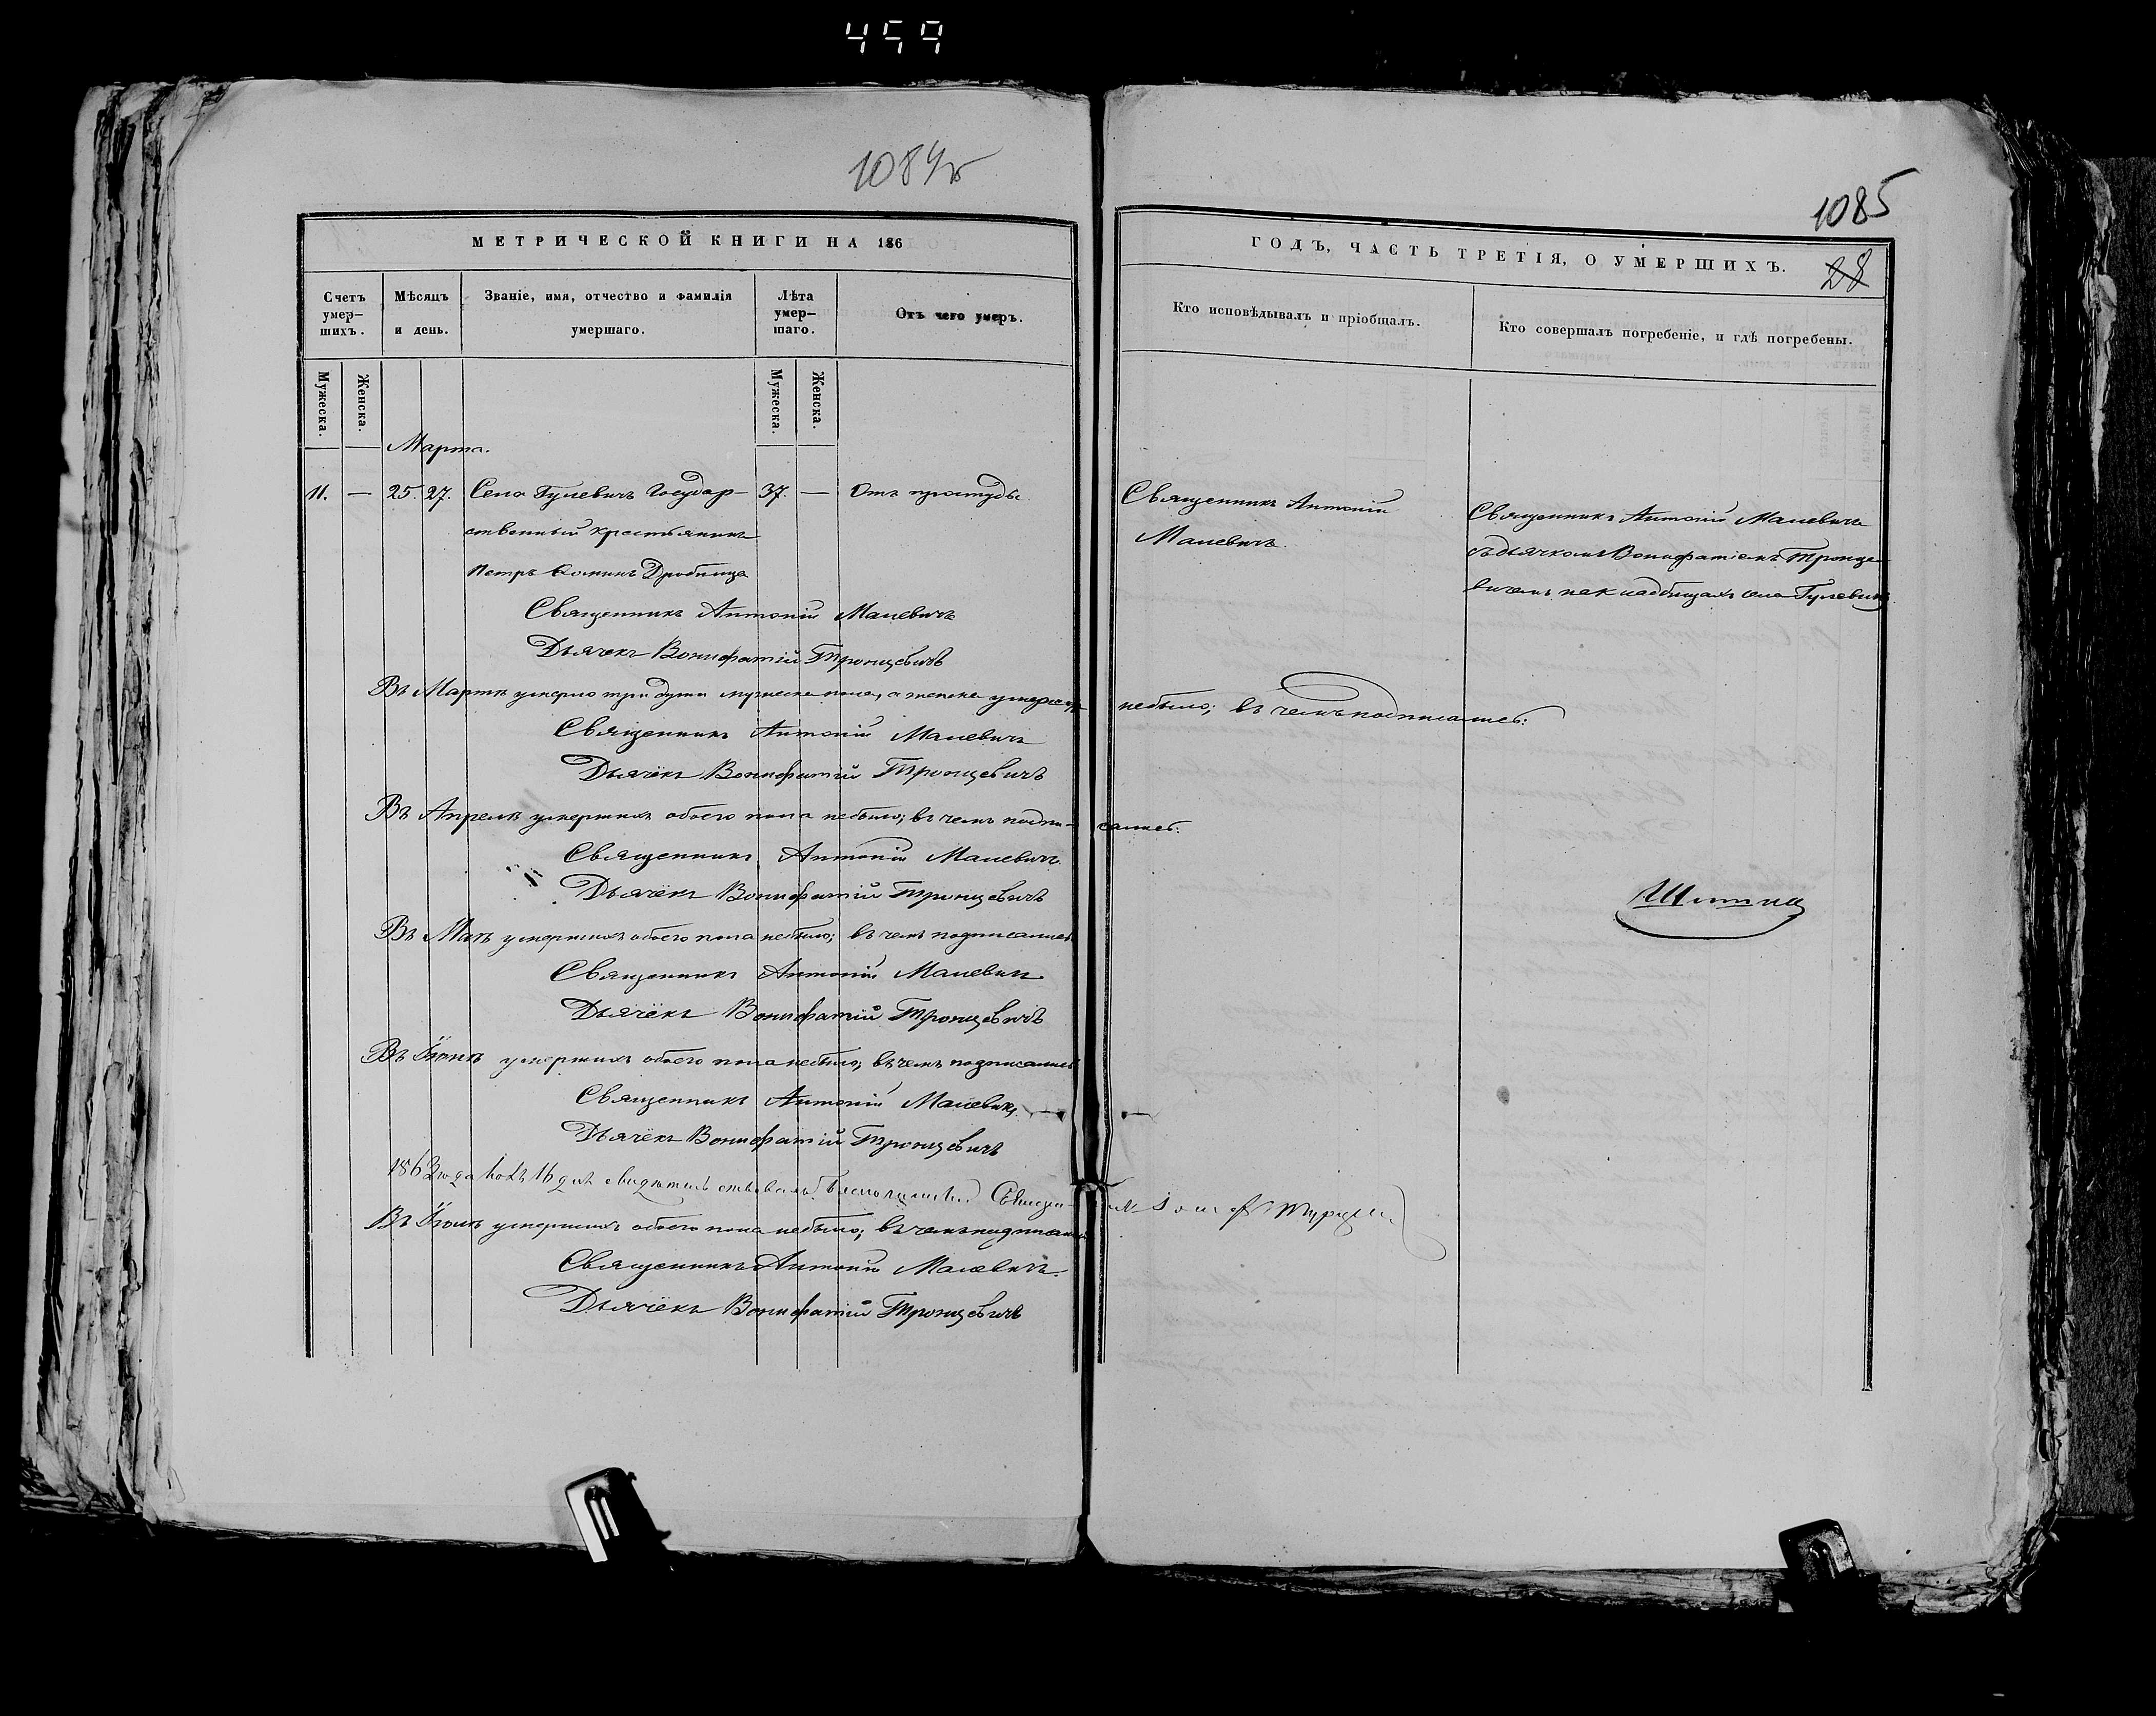 459
1084б
1085
28
МЕТРИЧЕСКОЙ КНИГИ НА 186
ГОДЪ, ЧАСТЬ ТРЕТІЯ, О УМЕРШИХЪ.
Счетъ умер-шихъ.
Мѣсяцъ и день.
Званіе, имя, отчество и фамилія умершаго.
Лѣта умер-шаго.
Отъ чего умеръ.
Кто исповѣдывалъ и пріобщалъ.
Кто совершалъ погребеніе, и гдѣ погребены.
Мужеска.
Женска.
Мужеска.
Женска.
Марта.
11. — 25. 27. Села Гулевичъ Государ- 37. — Отъ простуды.
ственный крестьянинъ
Петръ Фоминъ Дробница
Священникъ Антоній
Малевичъ.
Священникъ Антоній Малевичъ
съ дьячкомъ Вонифатіемъ Тронце-
вичемъ на кладбищахъ села Гулевичъ.
Священникъ Антоній Малевичъ
Дьячекъ Вонифатій Тронцевичъ
Въ Мартѣ умерло три души мужеска пола, а женска умершихъ небыло; въ чемъ подписались:
Священникъ Антоній Малевичъ
Дьячёкъ Вонифатій Тронцевичъ
Въ Апрелѣ умершихъ обоего пола небыло; въ чемъ подпи-сались:
Священникъ Антоній Малевичъ
Дьячёкъ Вонифатій Тронцевичъ
Въ Маѣ умершихъ обоего пола небыло; въ чемъ подписались
Священникъ Антоній Малевичъ
Дьячёкъ Вонифатій Тронцевичъ
Въ Іюнѣ умершихъ обоего пола небыло; въ чемъ подписались
Священникъ Антоній Малевичъ
Дьячёкъ Вонифатій Тронцевичъ
1863 года 16 дня свидѣтельствовалъ Благочинный Священ-
Въ Іюлѣ умершихъ обоего пола небыло; въ чемъ подписались
Священникъ Антоній Малевичъ.
Дьячёкъ Вонифатій Тронцевичъ